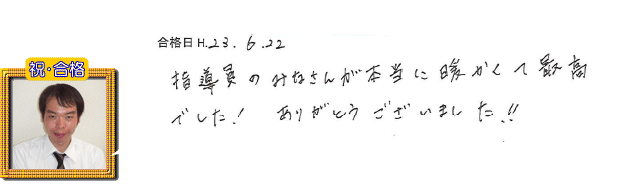 合格日 H.23.6.22
祝・合格
指導員のみなさんが本当に暖かくて最高
でした! ありがとうございました!!